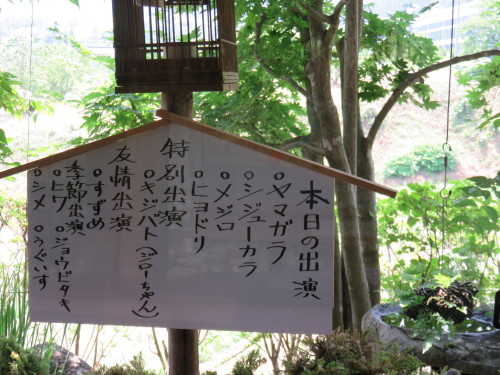 本日の出演
○ヤマガラ
○シジューカラ
○メジロ
○ヒヨドリ
特別出演
○キジバト(ジローちゃん)
友情出演
○すずめ
季節出演
○ヒワ ○ジョウビタキ
○シメ ○うぐいす